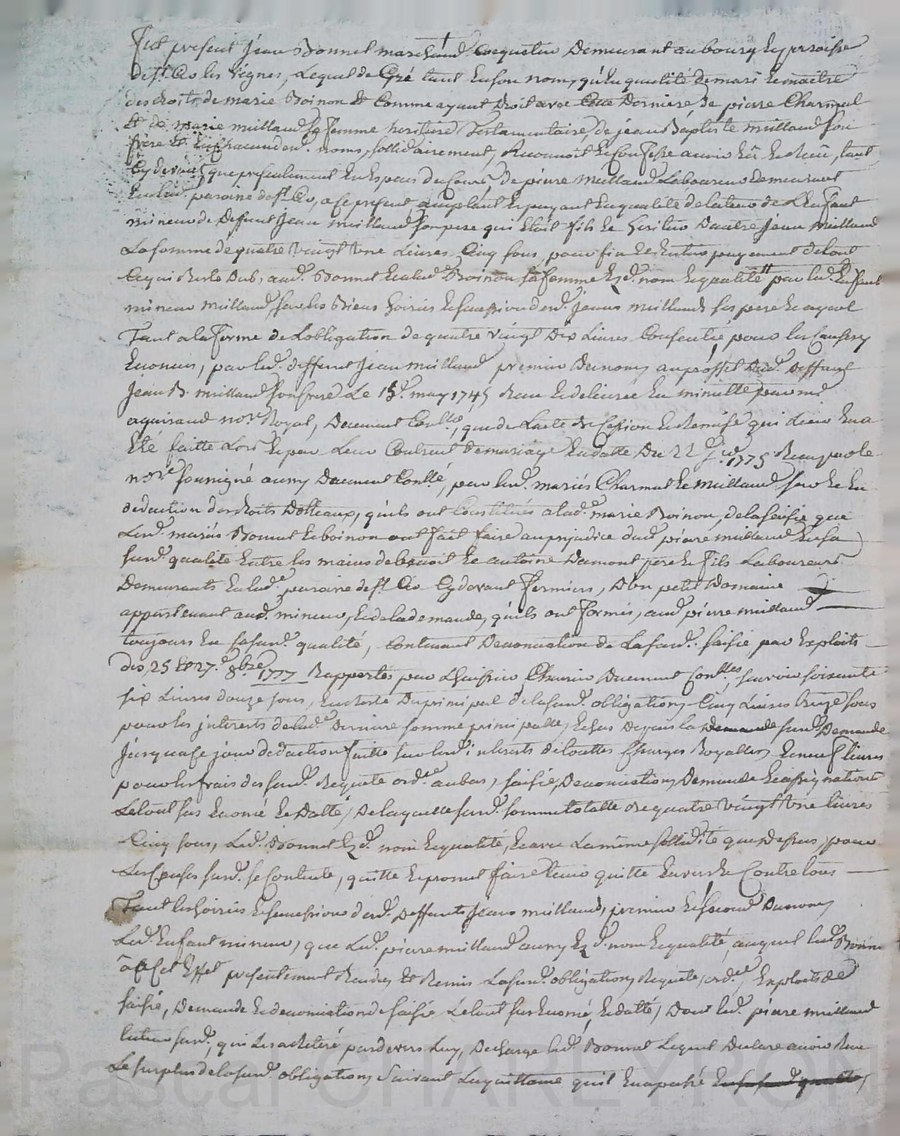 Fut present Jean Bonnet marchand coquetier Demeurant au bourg et paroisse
de St Cio les vignes, Lequel de Gré tant en son nom, qu'en qualité de mari et maitre
des droits de marie Boinon et Comme ayant Droit avec Cette Derniere De pierre Charmet
et de marie millaud sa femme heritiere Testamentaire de jean Baptiste millaud son
frere et noms, sollidairement, Reconnoit et Confesse avoir Eû et Receu, tant
Cydevant que presentement en Especes du Cours de pierre millaud Laboureur Demeurant
en lad. paroisse de St Cio, a ce present acceptant et payant en qualité de tuteur de L'Enfant
mineur de Deffunt Jean millaud son pere qui Etoit fils et heritier D'autre Jean millaud
La somme de quatre vingt une Livres Cinq sous, pour fin et Entier payement de tout
Ce qui Reste Dub, aud. Bonnet et a lad. Boinon sa femme Ezd. nom et qualité par led. Enfant
mineur millaud sur les Biens hoiries et succession desd. Jeans millaud ses pere et ayeul
Tant a la forme de L'obligation de quatre vingt Dix Livres Consentie pour les Causes y
Enoncées, par led. deffunt Jean millaud premier Dunom, au proffit Dud. Deffunt
Jean B. millaud son frere Le 15e may 1745 Receu et delivrée en minutte par me
aguiraud nore Royal, Deuement Conllé, que de L'acte de Cession et Remise qui Leur en a
Eté faitte Lors et par Leur Contract de mariage en datte Du 22 1775 Receu par le
nore soussigné aussy Deuement Conllé, par led. mariés Charmet et millaud sur et en
deduction des droits Dotteaux, qu'ils ont Constitués a lad. marie Boinon, de la saisie que
Lesd. mariés Bonnet et boinon ont fait faire au prejudice dud. pierre millaud en sa
susd. qualité Entre les mains de benoit et antoine Dumont pere et fils Laboureurs
Demeurants en lad. paroisse de St Cio Cydevant fermiers, D'un petit Domaine
appartenant aud. mineur, et de la demande, qu'ils ont formée, aud. pierre millaud
toujours en sa susd. qualité, Contenant Denonciation de La susd. saisie par Exploits
des 25 et 27e 8bre 1777 Rapportés par L'huissier Chavrier Deuement Conlles savoir soixante
six Livres douze sous, en reste Du principal de la susd. obligation, Cinq Livres treize sous
pour les jnterets de lad. Derniere somme principalle, Echus Depuis la susd. Demande
jusqua ce jour deduction faitte sur les interets de touttes Charges Royalles, et neuf livres
pour les frais des susd. Requete ordce au bas, saisie, Denonciation, Demande et assignation
Le tout sus Enoncé et Datté, De laquelle susd. somme totalle de quatre vingt une livres
Cinq sous, Led. Bonnet Ezd. nom et qualité, et avec La même sollidité que Dessus, pour
Les Causes susd. se Contente, quitte et promet faire tenir quitte Envers et Contre tous
Tant les hoiries et successions desd. Deffunts Jeans millaud, premier et second Dunom,
Led. Enfant mineur, que Led. pierre millaud aussy Ezd. nom et qualité, auquel led. Bonnet
a cet Effet presentement Rendu et Remis La susd. obligation, Requete, ordce, Exploits de
saisie, Demande et denonciation de saisie Le tout sus Enoncé, et datté, Dont led. pierre millaud
tuteur susd., qui Les a Retiré pardevers Luy, Decharge led. Bonnet Lequel Declare avoir Receu
Le surplus de la susd. obligation, Suivant La quittance qu'il en a passé